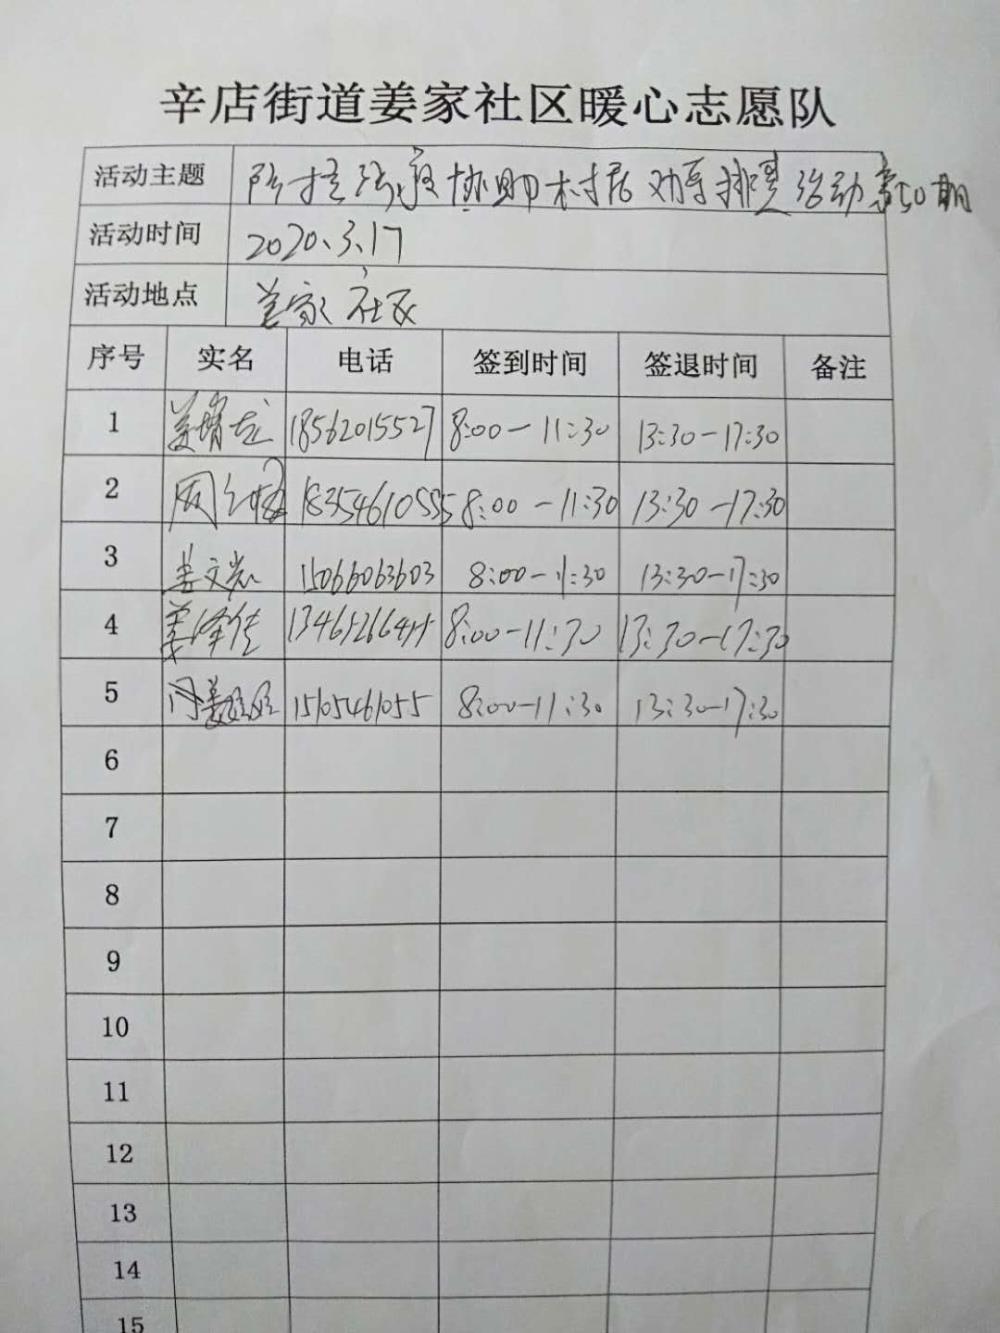 辛店街道姜家社区暖心志愿队
活动主题 防控 疫 协助村居劝导排查活动第50期
活动时间 2020.3.17
活动地点 姜家社区
序号 实名 电话 签到时间 签退时间 备注
1 姜 龙 18562015527 8:00-11:30 13:30-17:30
2 18354610555 8:00-11:30 13:30-17:30
3 姜文 15066063603 8:00-11:30 13:30-17:30
4 姜泽佳 8:00-11:30 13:30-17:30
5 15105461055 8:00-11:30 13:30-17:30
6
7
8
9
10
11
12
13
14
15